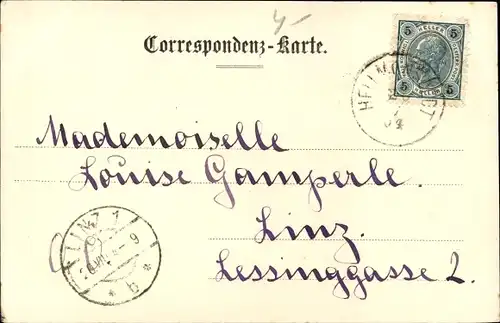 4-
Correspondenz-Karte.
5 HELLER 5
5 HELLER 5
Mademoiselle
Louise Gamperle.
Linz.
Lessinggasse 2.
LINZ 1
9
* b *